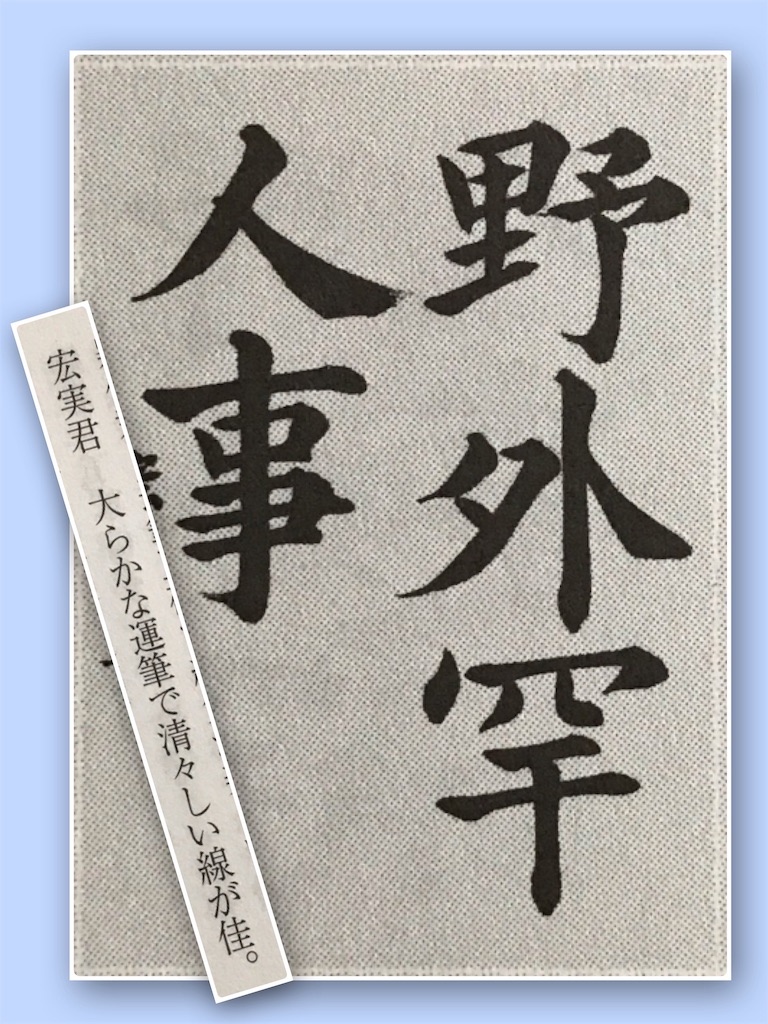 野外罕
人事
宏実君 大らかな運筆で清々しい線が佳。